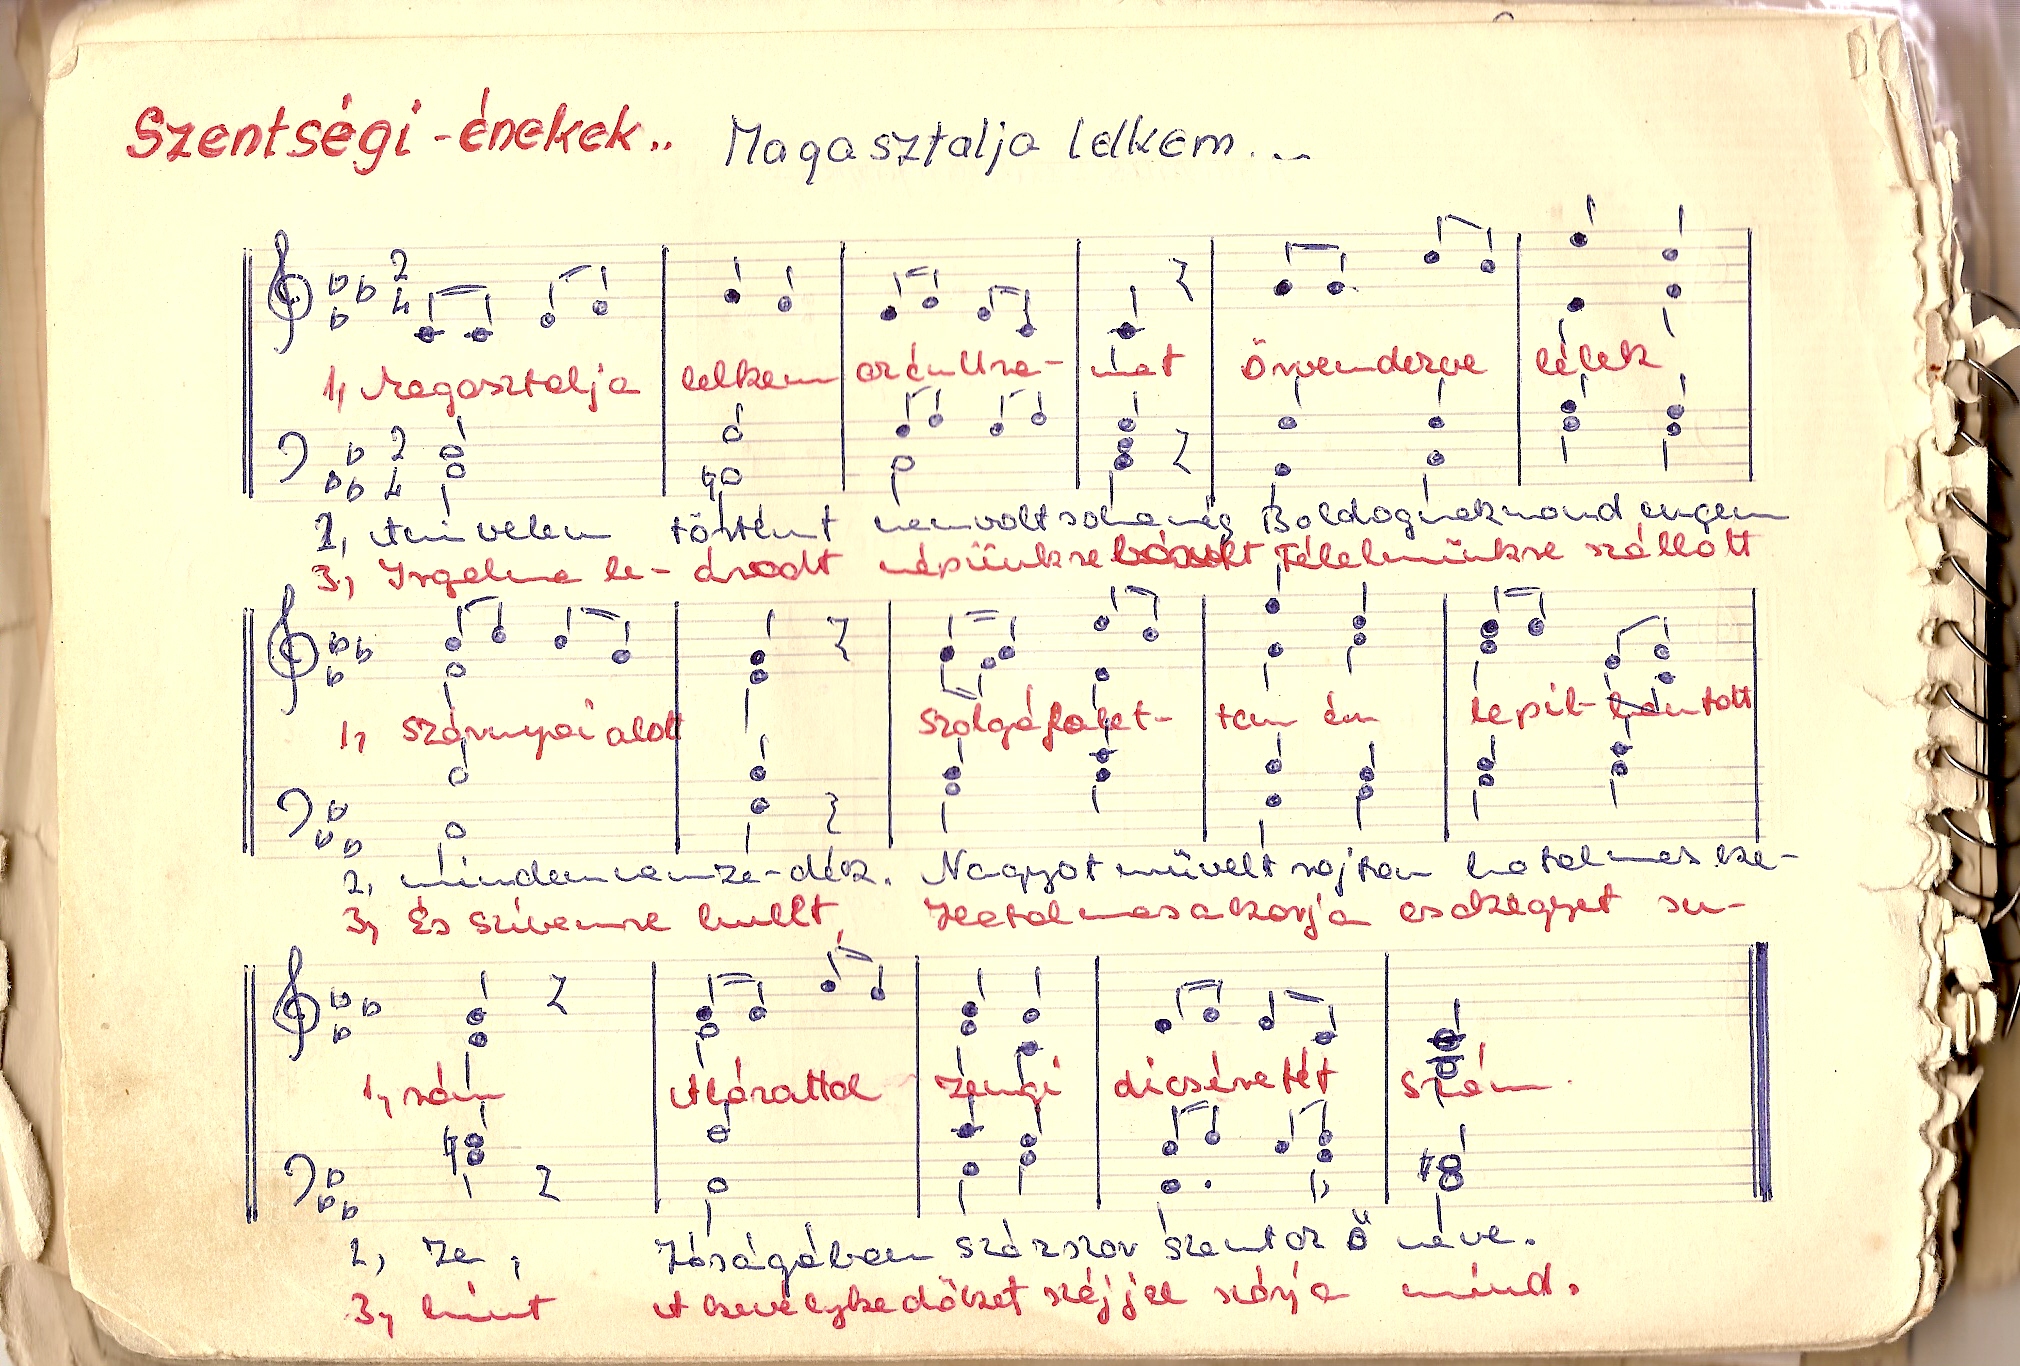 Szentségi-énekek.. Magasztalja lelkem...
2
4
1, Magasztalja lelkem az én Ura-mat Örvendezve lélek
2
4
2, Ami velem történt nem volt soha még Boldognak mond engem
3, Irgalma le-áradt népünkre Félelmünkre szállott
1, szárnyai alatt szolgáló let-tem én lepil-lantott
2, minden nemze-dék. Nagyot művelt rajtam hatalmas ke-
3, És szívemre hullt, Hatalmas a karja csak egyet su-
1, rám Alázattal zengi dicséretét szám
2, Ze, Jóságában százszor szent az ő neve.
3, hint A kevélykedőket széjjel szórja mind.